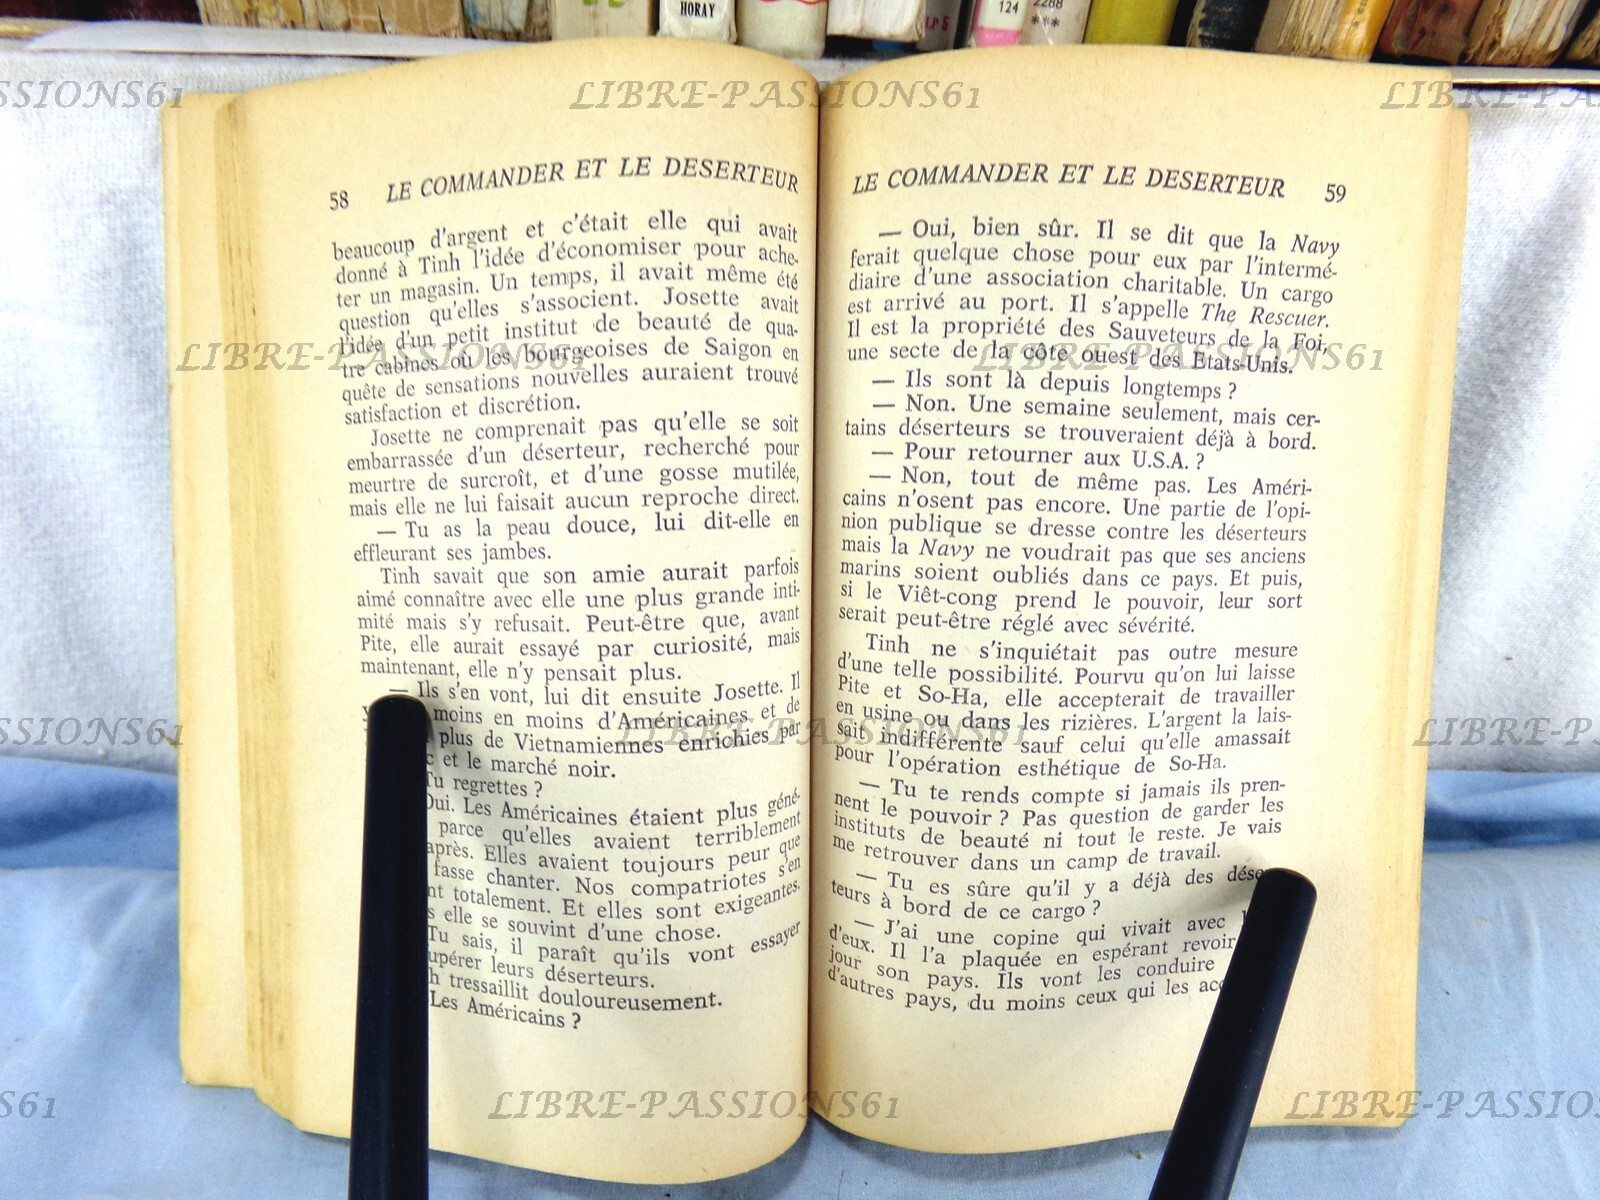 HORAY
LP 5
124
2288
***
LIBRE-PASSIONS61
58 LE COMMANDER ET LE DESERTEUR
beaucoup d'argent et c'était elle qui avait
donné à Tinh l'idée d'économiser pour ache-
ter un magasin. Un temps, il avait même été
question qu'elles s'associent. Josette avait
l'idée d'un petit institut de beauté de qua-
tre cabines où les bourgeoises de Saigon en
quête de sensations nouvelles auraient trouvé
satisfaction et discrétion.
Josette ne comprenait pas qu'elle se soit
embarrassée d'un déserteur, recherché pour
meurtre de surcroît, et d'une gosse mutilée,
mais elle ne lui faisait aucun reproche direct.
— Tu as la peau douce, lui dit-elle en
effleurant ses jambes.
Tinh savait que son amie aurait parfois
aimé connaître avec elle une plus grande inti-
mité mais s'y refusait. Peut-être que, avant
Pite, elle aurait essayé par curiosité, mais
maintenant, elle n'y pensait plus.
— Ils s'en vont, lui dit ensuite Josette. Il
moins en moins d'Américaines et de
plus de Vietnamiennes enrichies par
c et le marché noir.
Tu regrettes ?
Oui. Les Américaines étaient plus géné-
parce qu'elles avaient terriblement
après. Elles avaient toujours peur que
fasse chanter. Nos compatriotes s'en
nt totalement. Et elles sont exigeantes.
s elle se souvint d'une chose.
Tu sais, il paraît qu'ils vont essayer
upérer leurs déserteurs.
h tressaillit douloureusement.
Les Américains ?
LE COMMANDER ET LE DESERTEUR 59
— Oui, bien sûr. Il se dit que la Navy
ferait quelque chose pour eux par l'intermé-
diaire d'une association charitable. Un cargo
est arrivé au port. Il s'appelle The Rescuer.
Il est la propriété des Sauveteurs de la Foi,
une secte de la côte ouest des Etats-Unis.
— Ils sont là depuis longtemps ?
— Non. Une semaine seulement, mais cer-
tains déserteurs se trouveraient déjà à bord.
— Pour retourner aux U.S.A. ?
— Non, tout de même pas. Les Améri-
cains n'osent pas encore. Une partie de l'opi-
nion publique se dresse contre les déserteurs
mais la Navy ne voudrait pas que ses anciens
marins soient oubliés dans ce pays. Et puis,
si le Viêt-cong prend le pouvoir, leur sort
serait peut-être réglé avec sévérité.
Tinh ne s'inquiétait pas outre mesure
d'une telle possibilité. Pourvu qu'on lui laisse
Pite et So-Ha, elle accepterait de travailler
en usine ou dans les rizières. L'argent la lais-
sait indifférente sauf celui qu'elle amassait
pour l'opération esthétique de So-Ha.
— Tu te rends compte si jamais ils pren-
nent le pouvoir ? Pas question de garder les
instituts de beauté ni tout le reste. Je vais
me retrouver dans un camp de travail.
— Tu es sûre qu'il y a déjà des déser-
teurs à bord de ce cargo ?
— J'ai une copine qui vivait avec l
d'eux. Il l'a plaquée en espérant revoir
jour son pays. Ils vont les conduire
d'autres pays, du moins ceux qui les acc